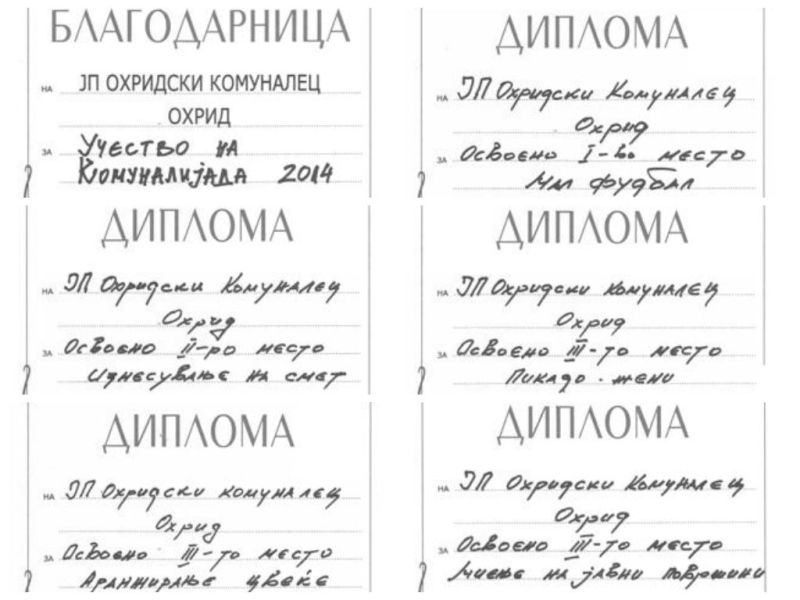 БЛАГОДАРНИЦА
НА ЈП ОХРИДСКИ КОМУНАЛЕЦ
ОХРИД
ЗА УЧЕСТВО НА
КОМУНАЛИЈАДА 2014
ДИПЛОМА
НА ЈП Охридски Комуналец
Охрид
ЗА Освоено I-во место
Мал фудбал
ДИПЛОМА
НА ЈП Охридски Комуналец
Охрид
ЗА Освоено II-ро место
Изнесување на смет
ДИПЛОМА
НА ЈП Охридски комуналец
Охрид
ЗА Освоено III-то место
Пикадо - жени
ДИПЛОМА
НА ЈП Охридски комуналец
Охрид
ЗА Освоено III-то место
Аранжирање цвеќе
ДИПЛОМА
НА ЈП Охридски Комуналец
Охрид
ЗА Освоено III-то место
на јавни површини